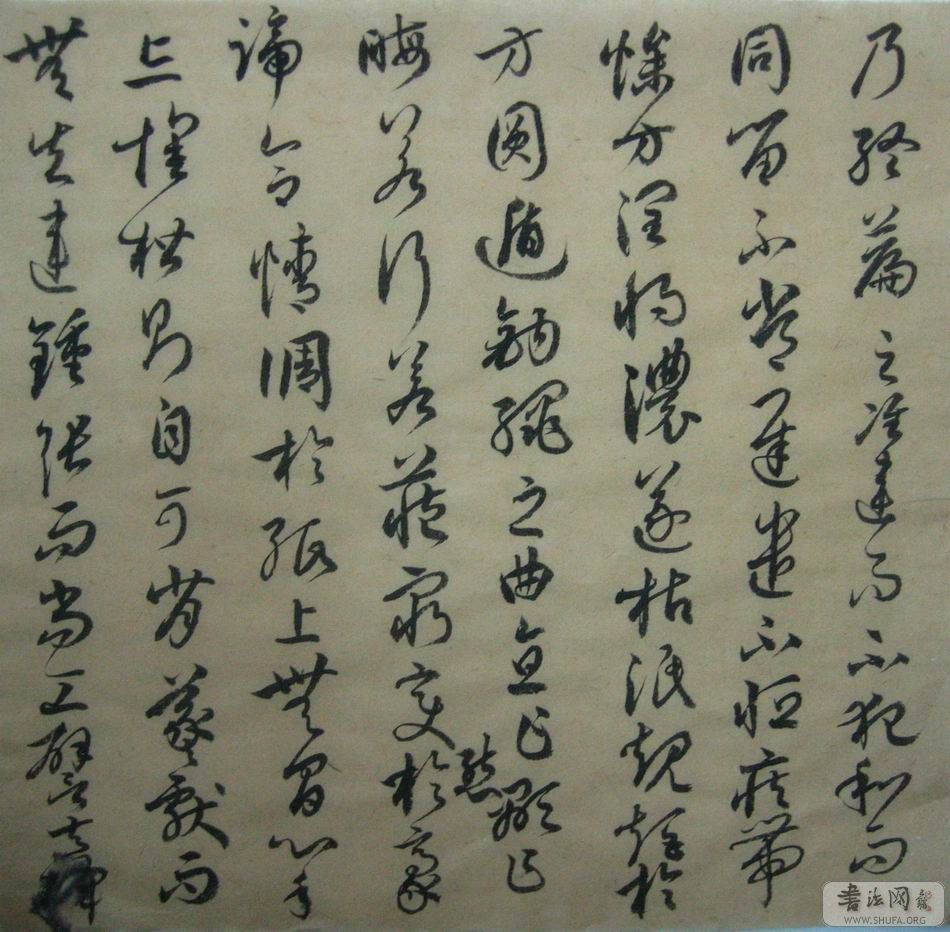 乃終篇之准違而不犯和而
同留不常遲遣不恒疾帶
燥方潤將濃遂枯泯規矩於
方圓遁鉤繩之曲直乍顯乍
晦若行若藏窮變態於豪
端合情調於紙上無間心手
忘懷楷則自可背羲獻而
無失違鍾張而尚工譬夫絳
書法网
WWW.SHUFA.ORG